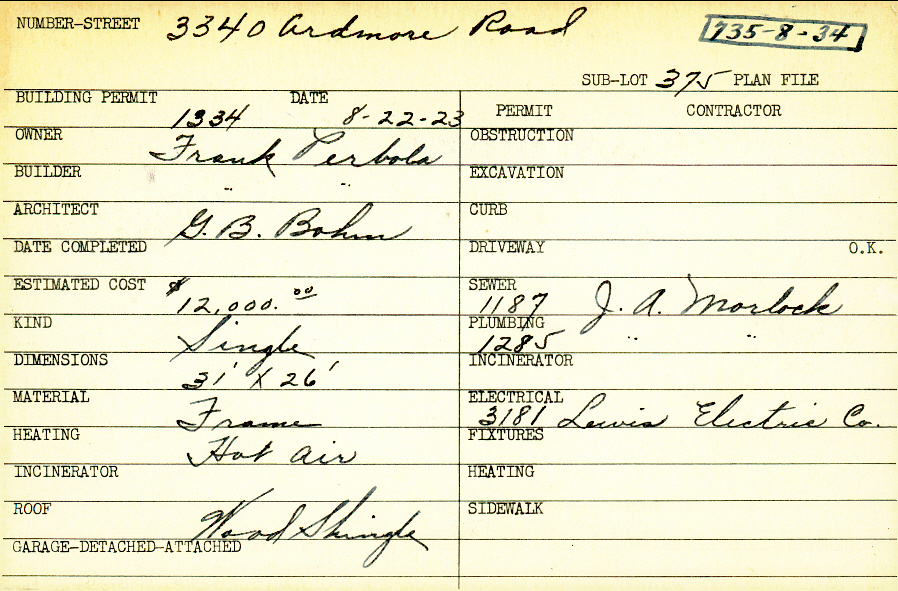 NUMBER-STREET 3340 Ardmore Road
735-8-34
SUB-LOT 375 PLAN FILE
BUILDING PERMIT 1334 DATE 8-22-23
PERMIT CONTRACTOR
OWNER Frank Perbola
OBSTRUCTION
BUILDER " "
EXCAVATION
ARCHITECT G. B. Bohm
CURB
DATE COMPLETED
DRIVEWAY O.K.
ESTIMATED COST $12,000.00
SEWER 1187 J. A. Morlock
KIND Single
PLUMBING 1285 " "
DIMENSIONS 31' X 26'
INCINERATOR
MATERIAL Frame
ELECTRICAL 3181 Lewis Electric Co.
HEATING Hot air
FIXTURES
INCINERATOR
HEATING
ROOF Wood Shingle
SIDEWALK
GARAGE-DETACHED-ATTACHED